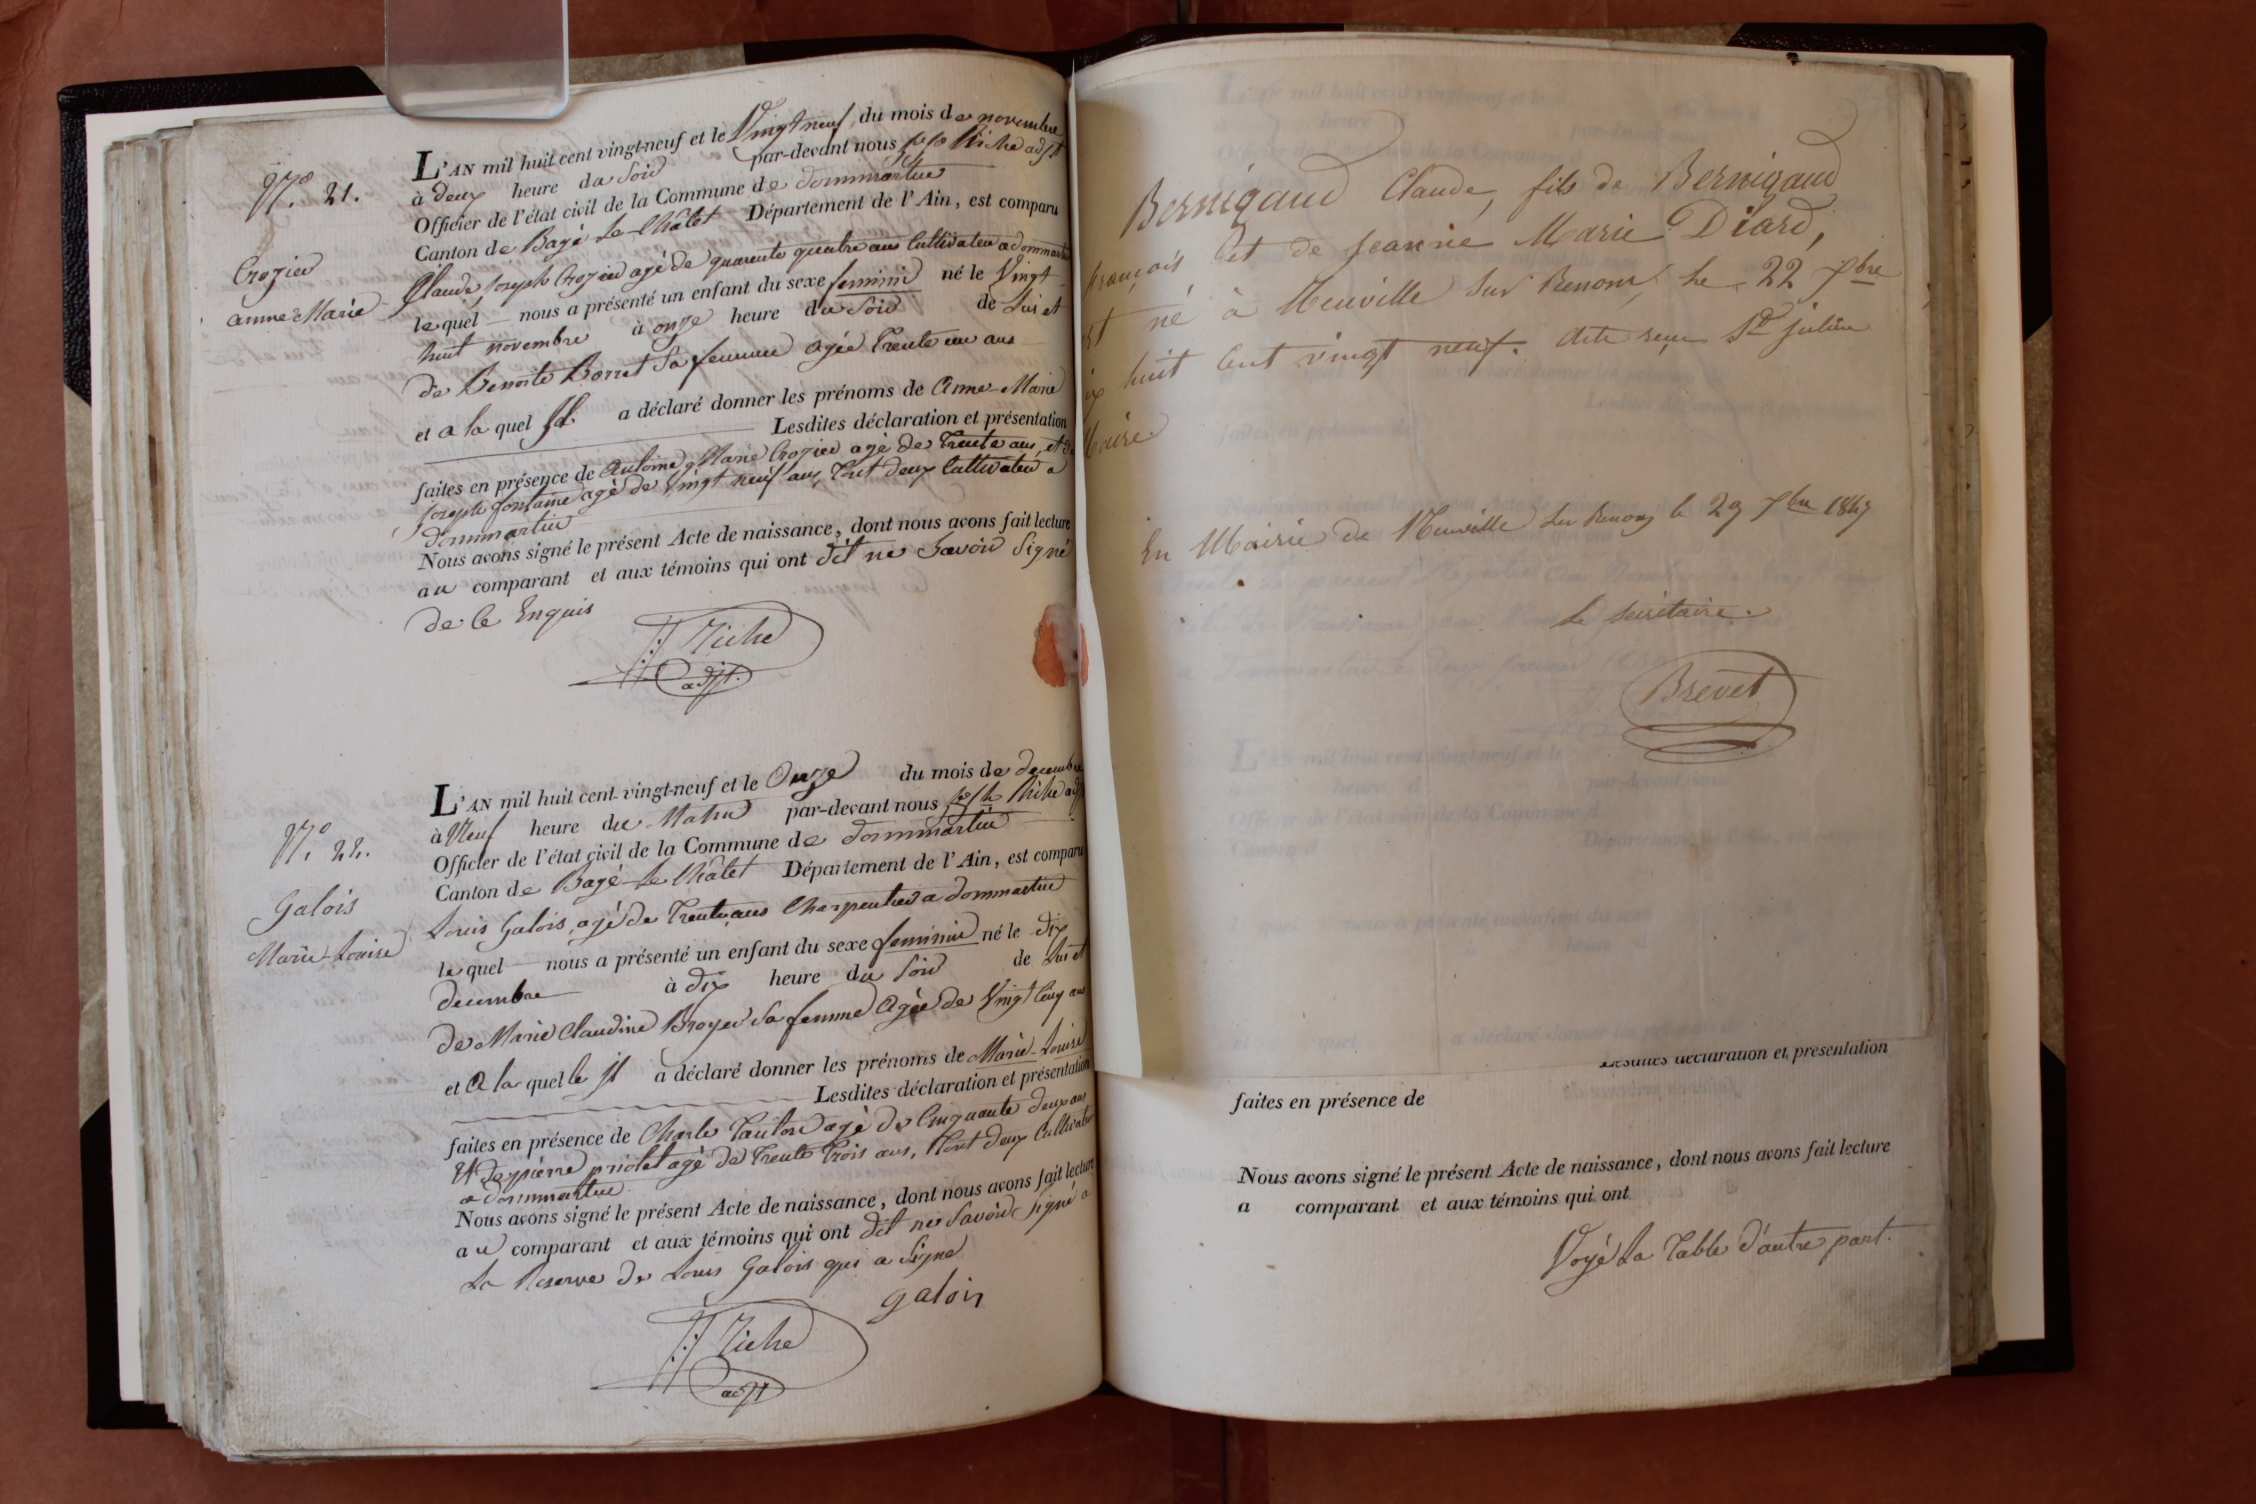 N.° 21.
Crozier
anne Marie
L'AN mil huit cent vingt-neuf et le Vingt neuf, du mois de novembre
à deux heure du soir par-devant nous jsph Riche adjt
Officier de l'état civil de la Commune de dommartin
Canton de Bagé Le Châtel Département de l'Ain, est comparu
Claude Joseph Crozier agé de quarente quatre ans Cultivateur a dommartin
lequel nous a présenté un enfant du sexe feminin né le Vingt
huit novembre à onze heure du soir de Lui et
de Benoite Borret sa femme agée Trente un ans
et a la quel il a déclaré donner les prénoms de Anne-Marie
Lesdites déclaration et présentation
faites en présence de Antoine Marie Crozier agé de Trente ans, et de
Joseph fontaine agé de Vingt neuf ans, Tout deux Cultivateur a
dommartin
Nous avons signé le présent Acte de naissance, dont nous avons fait lecture
au comparant et aux témoins qui ont dit ne savoir signé
de ce Enquis
Riche
adjt.
N.° 22.
Galois
Marie-Louise
L'AN mil huit cent vingt-neuf et le Onze du mois de decembre
à Neuf heure du Matin par-devant nous jsph Riche adjt
Officier de l'état civil de la Commune de dommartin
Canton de Bagé-Le Châtel Département de l'Ain, est comparu
Louis Galois, agé de Trente ans Charpentier a dommartin
lequel nous a présenté un enfant du sexe feminin né le dix
decembre à dix heure du soir de Lui et
de Marie Claudine Broyer sa femme Agée de Vingt Cinq ans
et a la quelle il a déclaré donner les prénoms de Marie-Louise
Lesdites déclaration et présentation
faites en présence de Charle Tauton agé de Cinquante deux ans
et de pierre priolet agé de Trente Trois ans, Tout deux Cultivateur
a dommartin
Nous avons signé le présent Acte de naissance, dont nous avons fait lecture
au comparant et aux témoins qui ont dit ne savoir signé a
La Reserve de Louis Galois qui a signe
galois
Riche
adjt
Bernigaud Claude, fils de Bernigaud
françois et de Jeanne Marie Diard,
est né à Neuville sur Renom, le 22 7bre
huit cent vingt neuf. acte reçu St julien
Maire
En Mairie de Neuville sur Renom le 29 7bre 1849
Le secrétaire.
Brevet
Lesdites déclaration et présentation
faites en présence de
Nous avons signé le présent Acte de naissance, dont nous avons fait lecture
a comparant et aux témoins qui ont
Voyé La Table d'autre part.